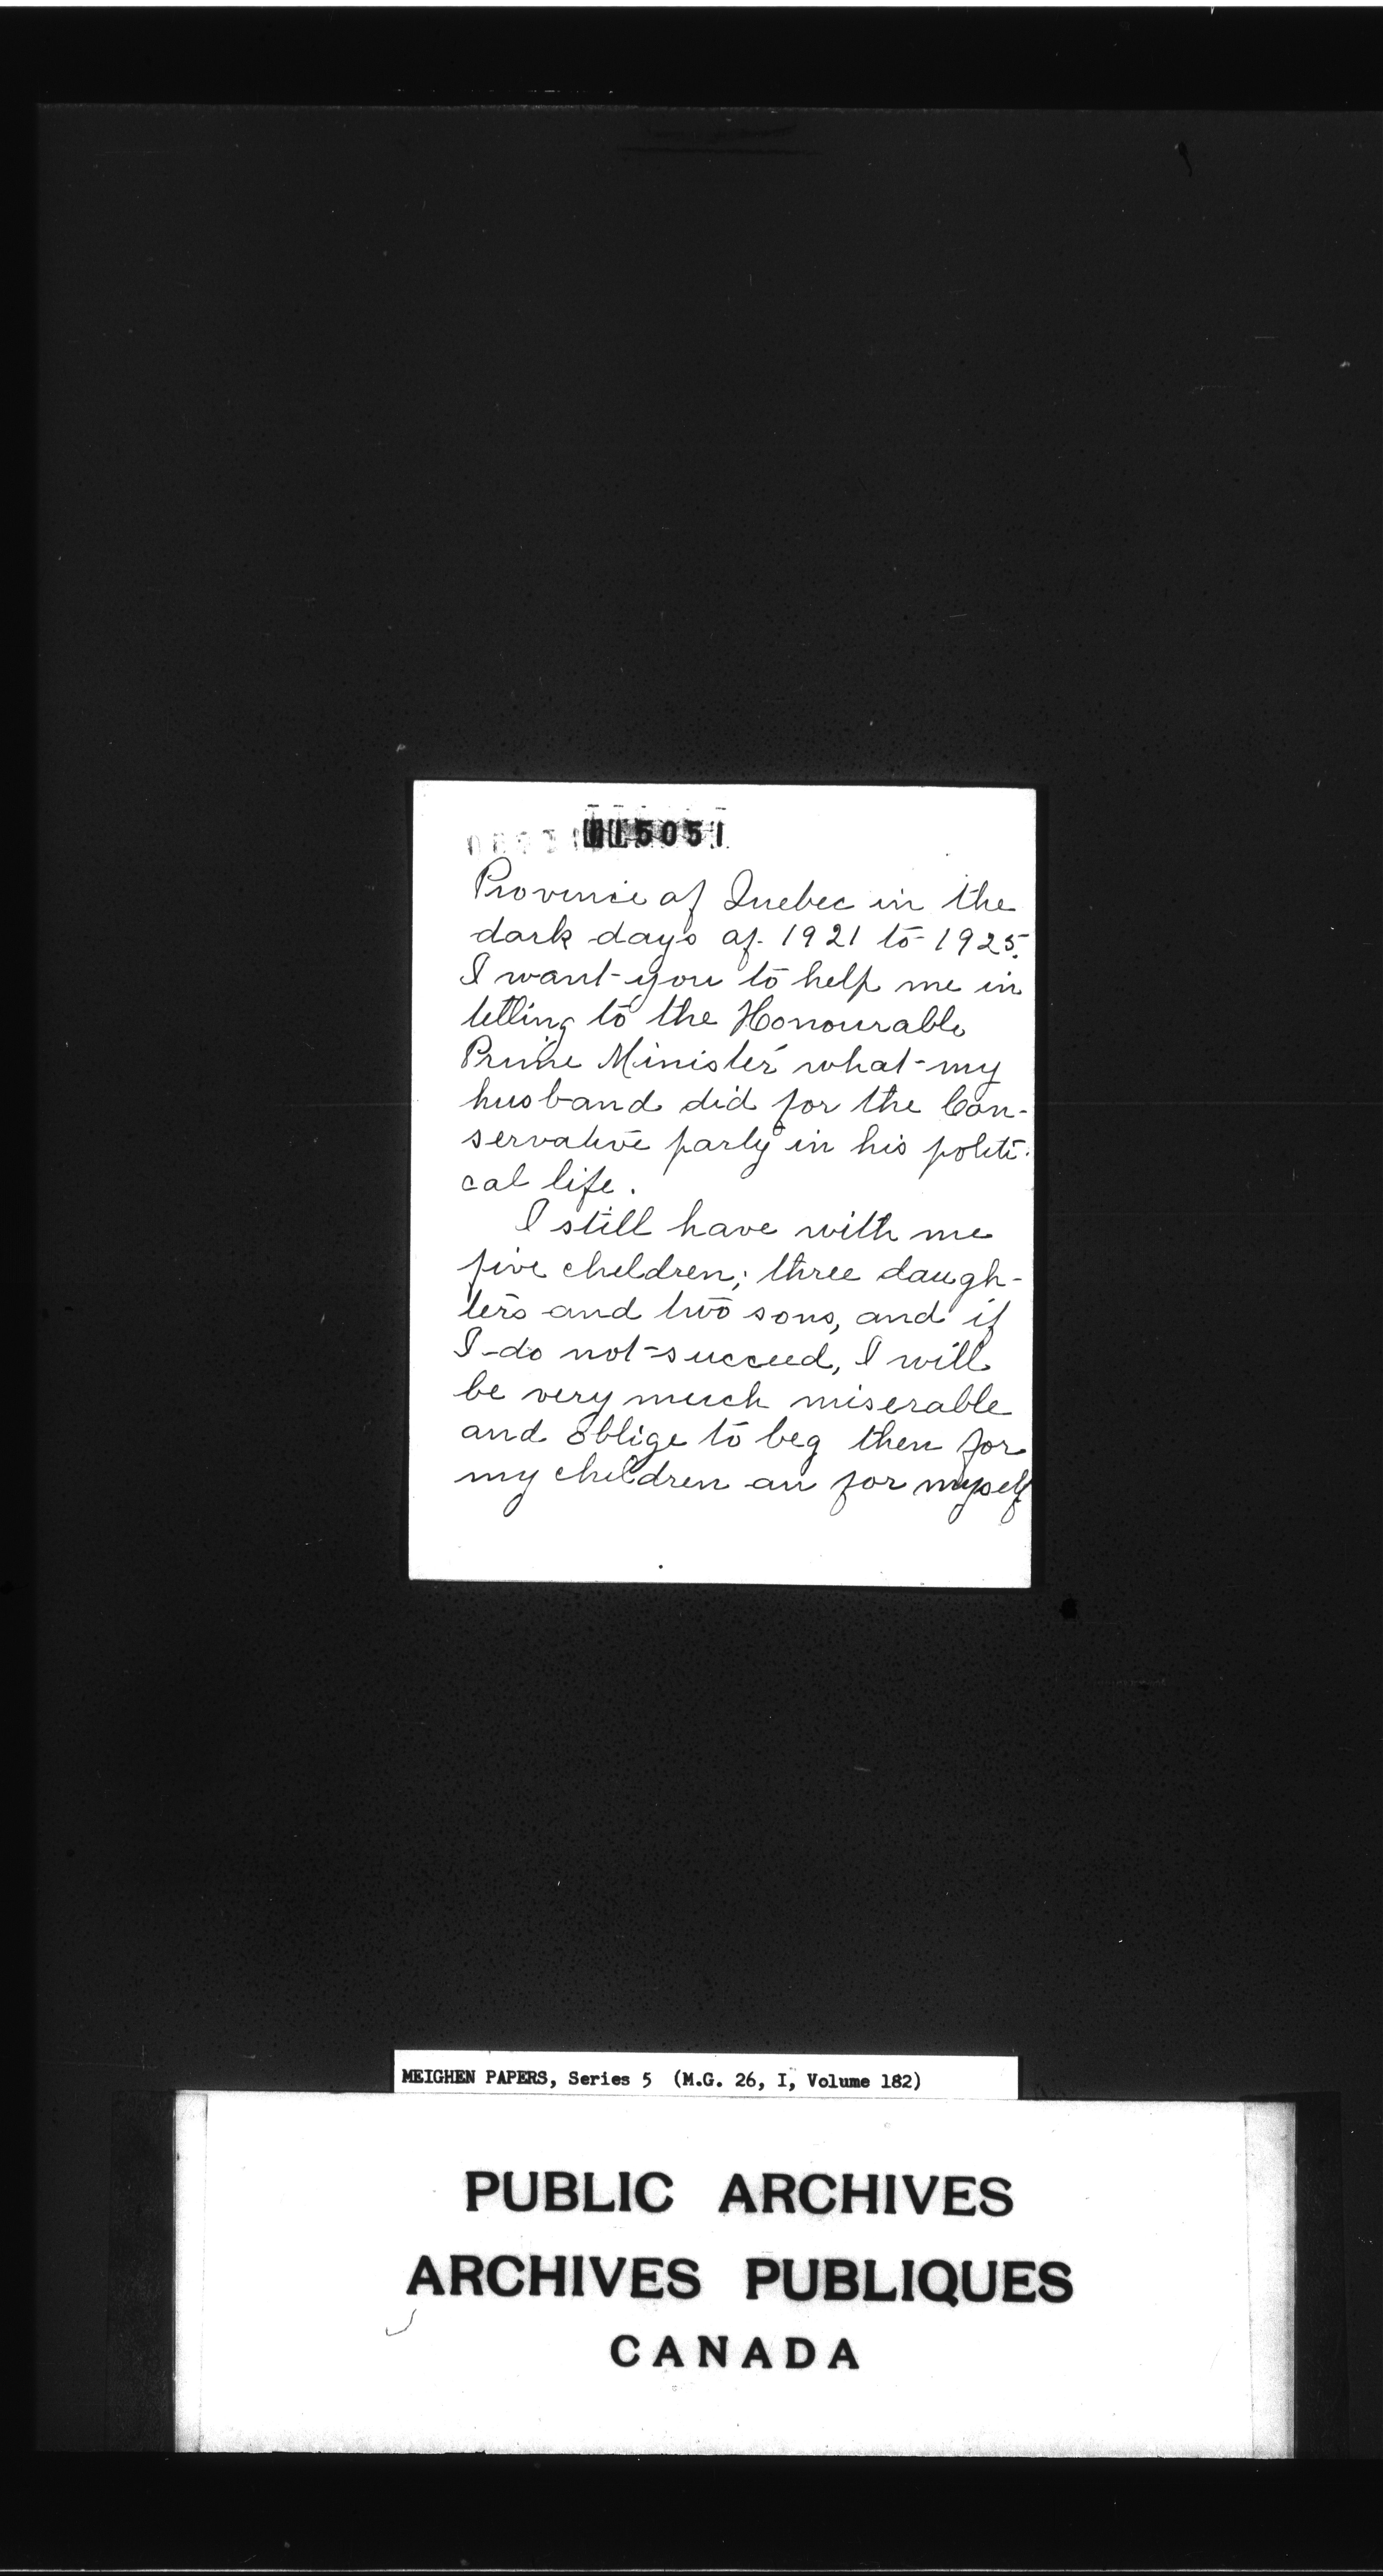 115051
Province of Quebec in the
dark days of 1921 to 1925.
I want you to help me in
telling to the Honourable
Prime Minister what my
husband did for the Con-
servative party in his politi-
cal life.
I still have with me
five children; three daugh-
ters and two sons, and if
I do not succeed, I will
be very much miserable
and oblige to beg then for
my children an for myself
MEIGHEN PAPERS, Series 5 (M.G. 26, I, Volume 182)
PUBLIC ARCHIVES
ARCHIVES PUBLIQUES
CANADA